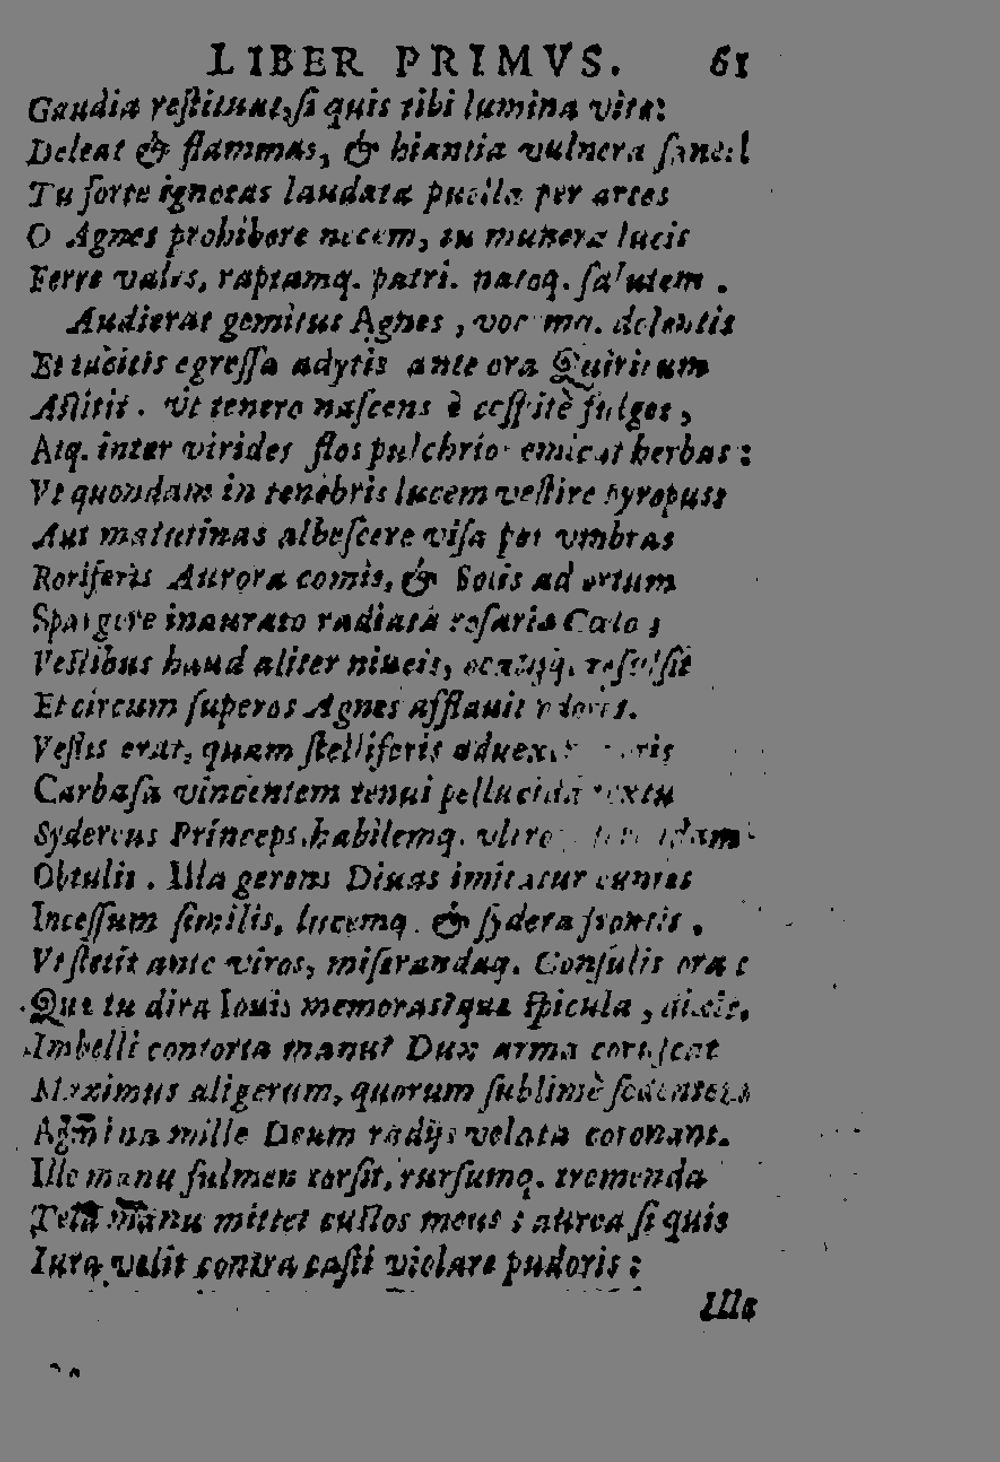 LIBER PRIMVS. 61
Gaudia reſtituat, ſi quis tibi lumina vitæ:
Deleat & flammas, & hiantia vulnera ſanet!
Tu forte ignotas laudata puella per artes
O Agnes prohibere necem, tu munera lucis
Ferre vales, raptamq. patri. natoq. ſalutem.
Audierat gemitus Agnes, dolentis
Et tacitis egreſſa adytis ante ora Quiritum
Aſtitit. Vt tenero naſcens è ceſpite fulget,
Atq. inter virides flos pulchrior emicat herbas:
Vt quondam in tenebris lucem veſtire pyropus
Aut matutinas albeſcere viſa per vmbras
Roriferis Aurora comis, & Solis ad ortum
Spargere inaurato radiata roſaria Cælo;
Veſtibus haud aliter niueis, refulſit
Et circum ſuperos Agnes afflauit odores.
Veſtis erat, quam ſtelliferis aduexit
Carbaſa vincentem tenui pellucida textu
Sydereus Princeps, habilemq. vltro
Obtulit. Illa gerens Diuas imitatur euntes
Inceſſum ſimilis, lucemq. & ſydera frontis.
Vt ſtetit ante viros, miſerandaq. Conſulis ora:
Quæ tu dira Iouis memoras? quæ ſpicula, dixit,
Imbelli contorta manu? Dux arma coruſcat
Maximus aligerum, quorum ſublimè ſedentem
Agmina mille Deum radijs velata coronant.
Ille manu fulmen torſit, rurſumq. tremenda
Tela manu mittet cuſtos meus; aurea ſi quis
Iura velit contra caſti violare pudoris:
Illa